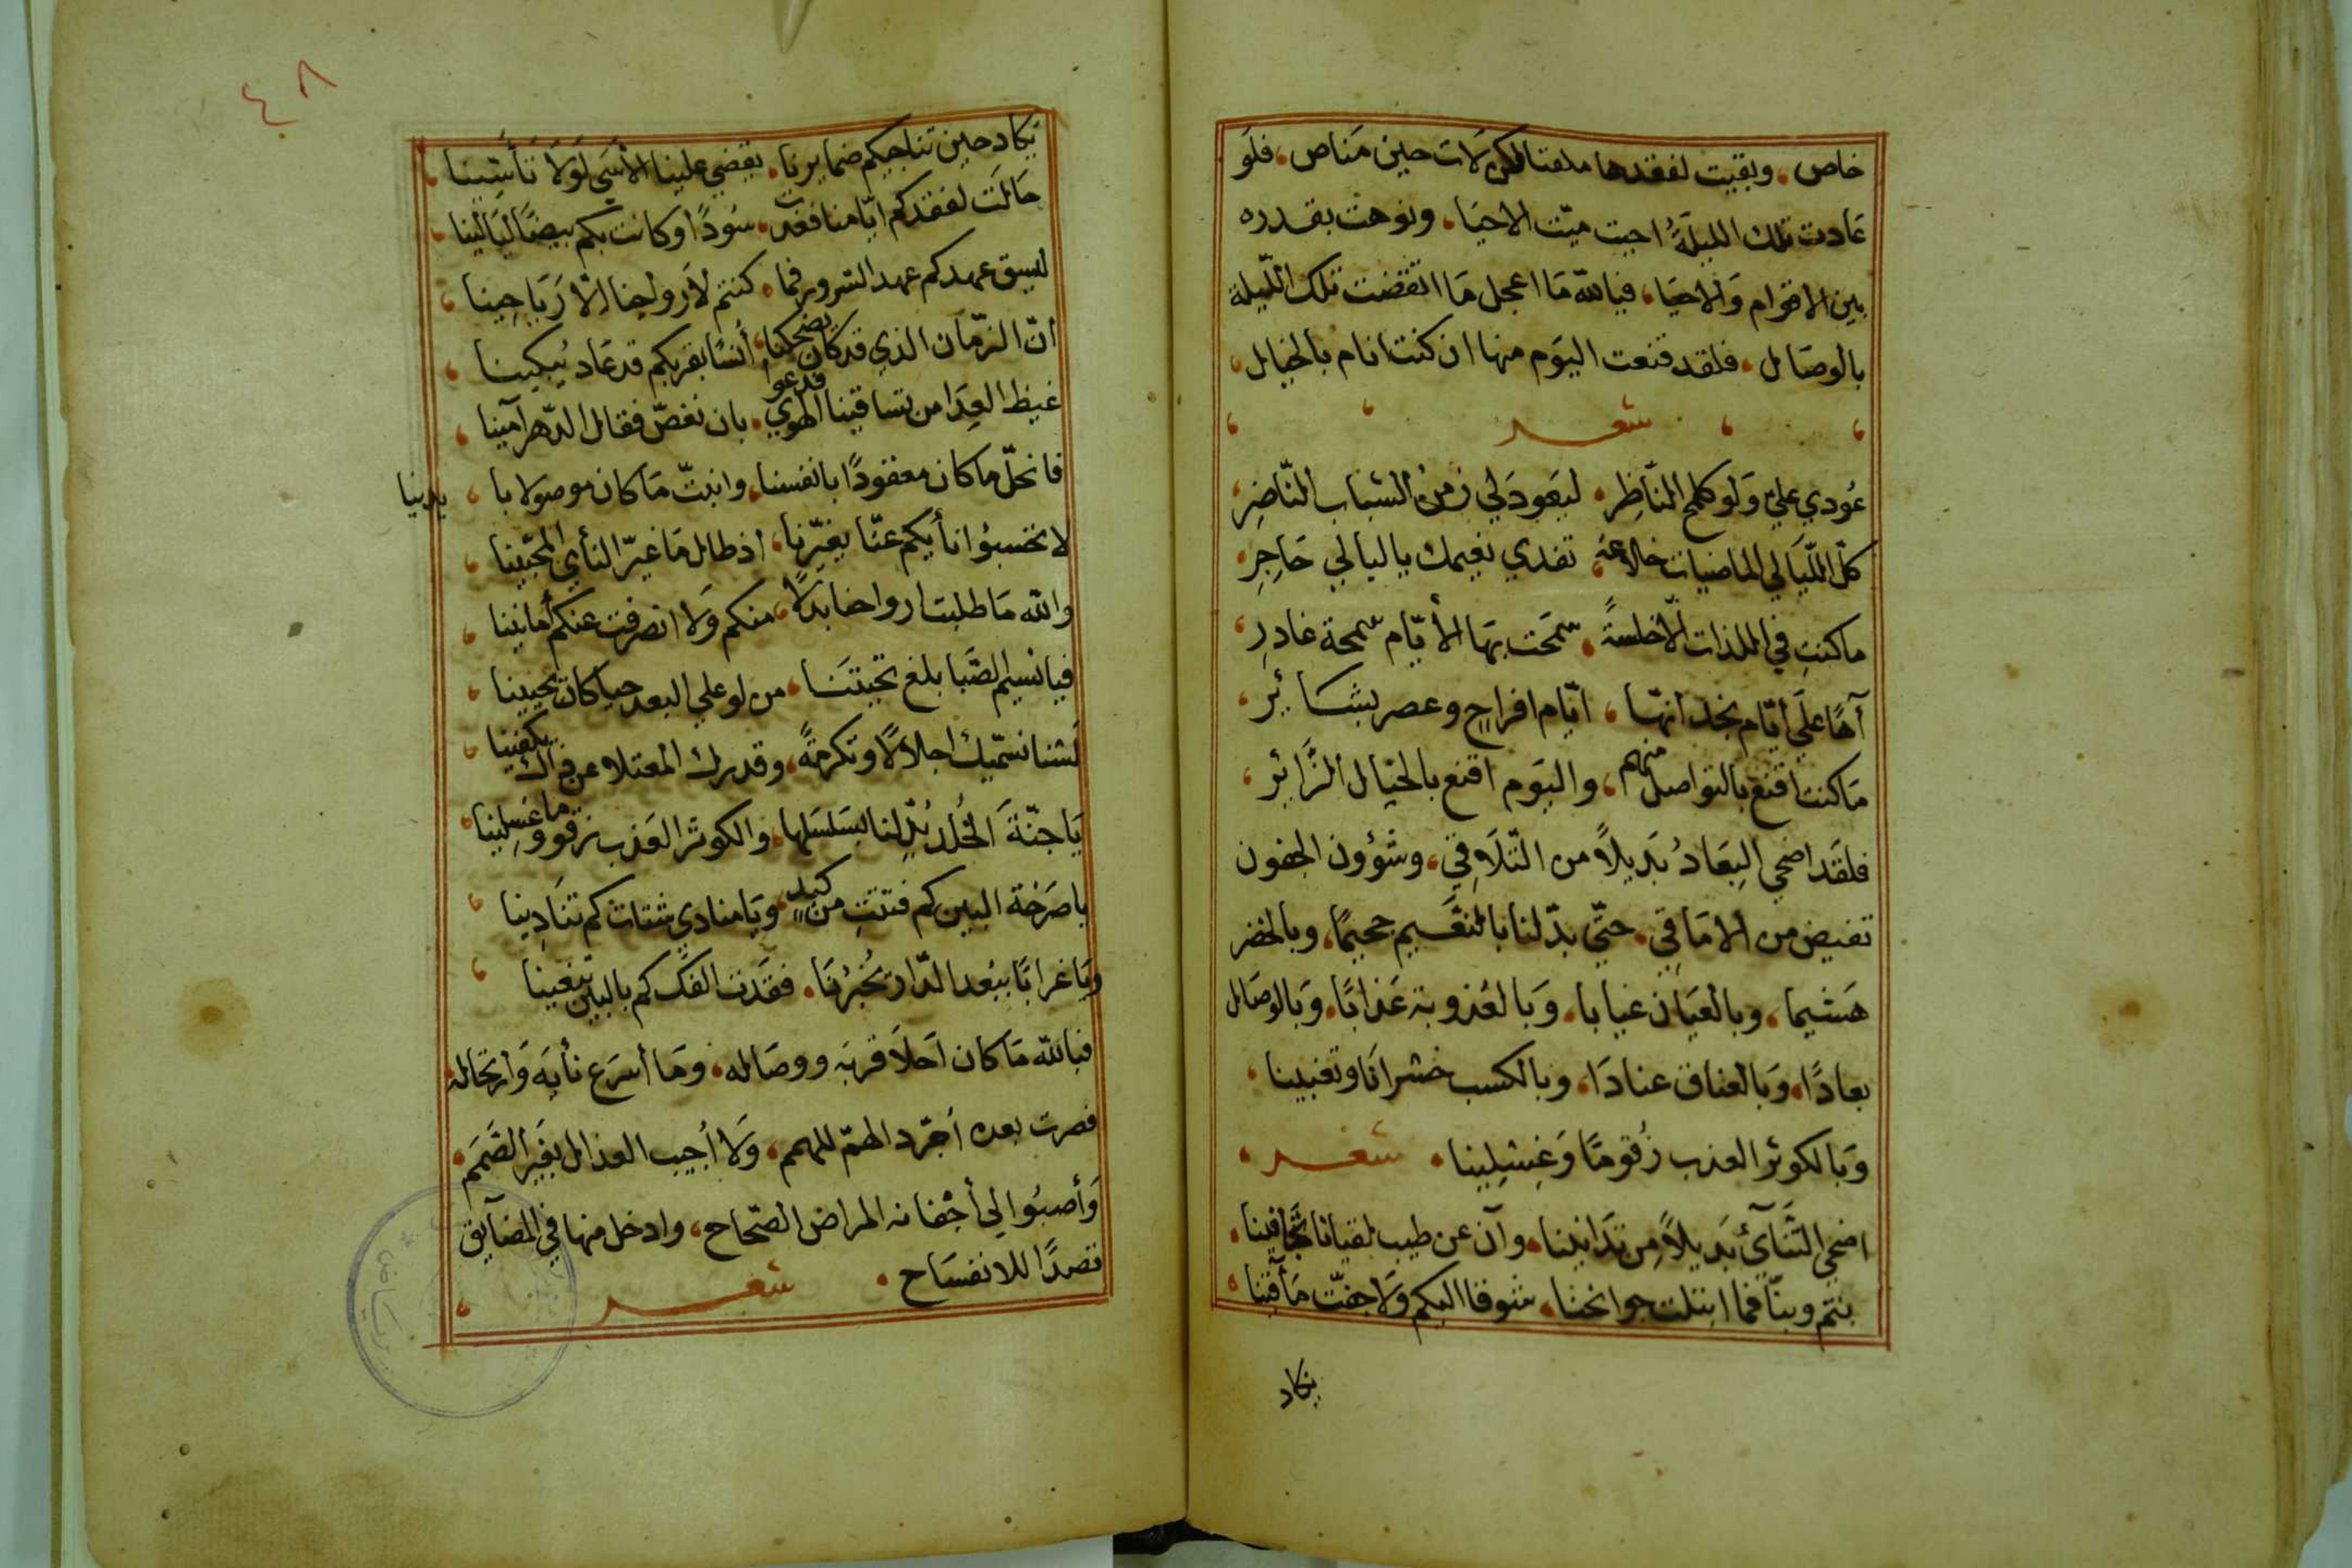 خاص، وبقيت لفقدها ملقتا لكن لات حين مناص، فلو
عادت تلك الليلة احيت ميّت الاحيا، ونوهت بقدره
بين الاقوام والاحيا، فيالله ما اعجل ما انقضت تلك اللّيلة
بالوصال، فلقد قنعت اليوم منها ان كنت انام بالخيال،
شعر
عودي عليّ ولو كلمح النّاظر، ليعود لي زمن الشباب النّاضر،
كلّ اللّيالي الماضيات خلاعة، تفدي نعيمك يا ليالي حاجر،
ما كنتِ في اللذات الّا خلسةً، سمحت بها الأيّام سمحة غادر،
آهًا على أيّام نجد انّها، ايّام افراح وعصر بشائر،
ما كنت اقنع بالتواصل منهم، واليوم اقنع بالخيال الزّائر،
فلقد اضحي البعادُ بديلاً من التّلاقي، وشؤون الجفون
تفيض من الاماقي، حتّي بدّلنا بالنعيم جحيمًا، وبالخضر
هشيما، وبالعيان غيابا، وبالعذوبة عذابًا، وبالوصال
بعادًا، وبالعناق عنادا، وبالكسب خسرانا وتغبينا،
وبالكوثر العذب زقومًا وغسلينا، شعر،
اضحي التنآئ بديلاً من تدانينا، وآن عن طيب لقيانا تجافينا،
بنتم وبنّا فما ابتلت جوانحنا، شوقا اليكم ولا جفّت مآقينا،
يكاد
٤٨
يكاد حين تناجيكم ضمايرنا، يقضي علينا الأسي لولا تأسّينا،
حالت لفقدكم ايّامنا فغدت، سودًا وكانت بكم بيضًا ليالينا،
ليسق عهدكم عهد السرور فما، كنتم لارواحنا الّا رياحينا،
انّ الزمان الذي قد كان يضحكنا، أنسًا بقربكم قد عاد يبكينا،
غيظ العدا من تساقينا الهوي فدعوا، بان نغصّ فقال الدّهر آمينا،
فانحلّ ما كان معقودًا بانفسنا، وانبتّ ما كان موصولا با، يدينيا
لا تحسبوا نأيكم عنّا يغيّرنا، اذ طال ما غيّر النأي المحبّينا،
والله ما طلبت ارواحنا بدلًا، منكم ولا انصرفت عنكم أمانينا،
فيا نسيم الصّبا بلغ تحيتنا، من لو علي البعد حيا كان يحيينا،
لسنا نسمّيك اجلالًا وتكرمةً، وقدرك المعتلا عن ذاك يكفينا،
يا جنّة الخُلد بُدّلنا بسلسلها، والكوثر العذب زقوما وغسلينا،
يا صرخة البين كم فتتتِ من كبدٍ، ويا منادي شتات كم تنادينا،
ويا غرابًا ببعد الدّار تُخبرُنا، فقدت الفك كم بالبين تبغينا،
فيالله ما كان احلا قربه ووصاله، وما أسرع نأيه وارتحاله،
فصرت بعده اجرّد الهمّ للهمم، ولا أجيب العذال بغير الصّمم،
وأصبوا لي أجفانه المراض الصّحاح، وادخل منها في المضآيق
قصدًا للانفساح، شعر،